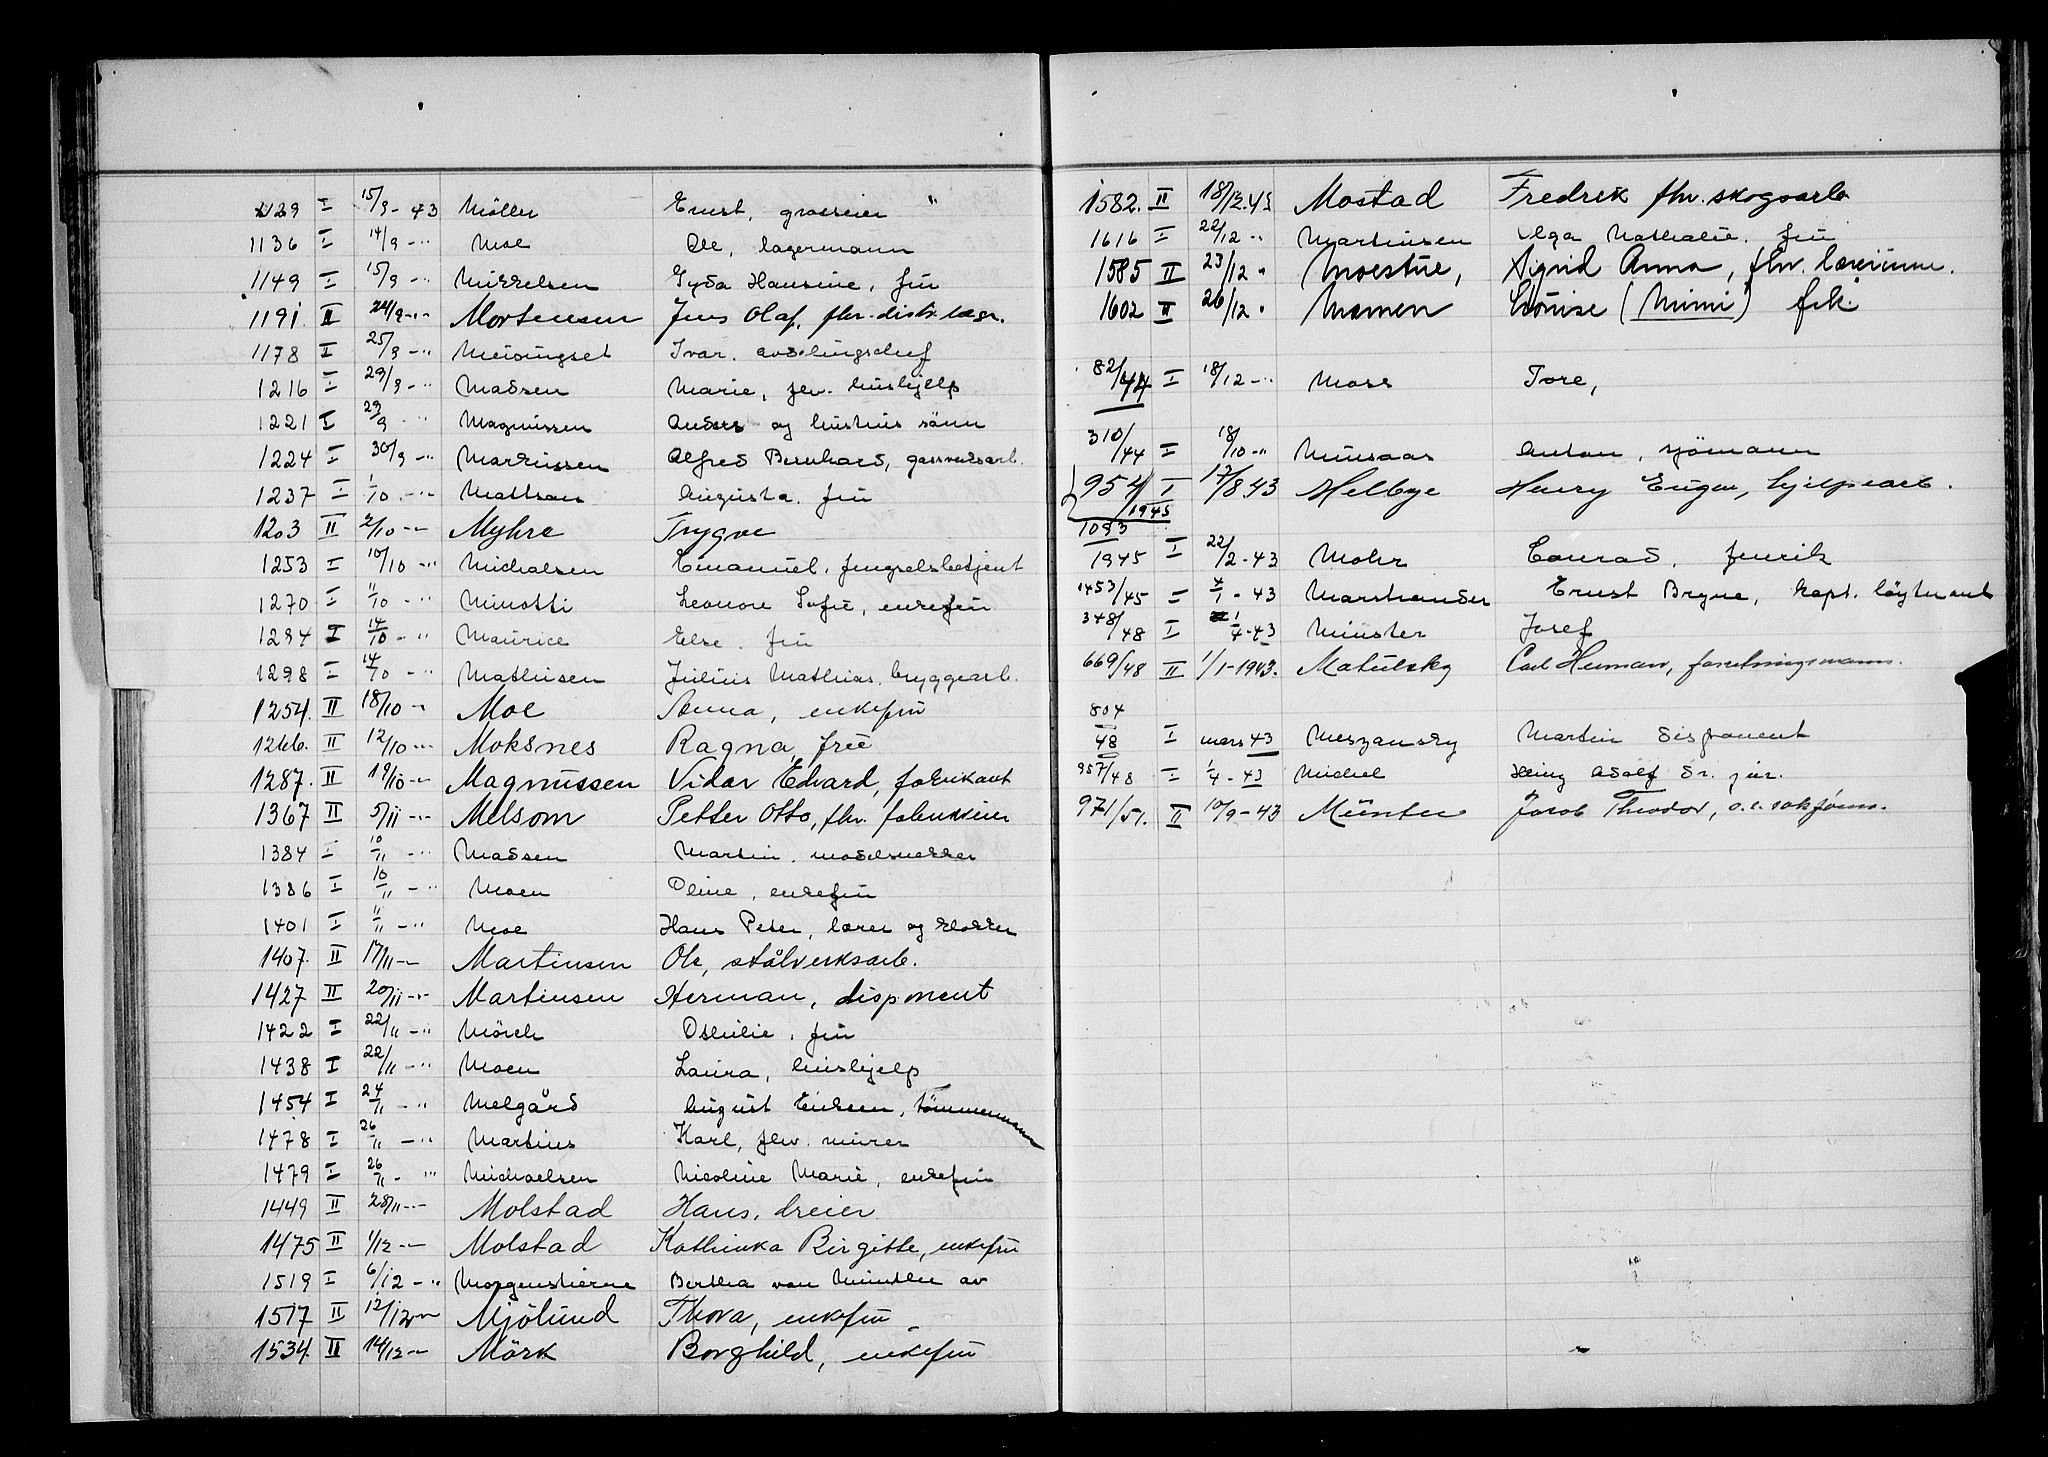 1129 I 15/9-43 Möller Ernst, grosseier "
1136 I 14/9 -" Moe Ole, lagermann
1149 I 15/9 -" Mikkelsen Gyda Hansine, fru
1191 II 24/9 -" Mortensen Jens Olaf, fhv. distr.lege.
1178 I 25/9 -" Meisingset Ivar. avdelingschef
1216 I 29/9 -" Madsen Marie, fhv. hushjelp
1221 I 29/9 " Magnussen Anders og hustrus sönn
1224 I 30/9 -" Markussen Alfred Bernhard, gassverksarb.
1237 I 1/10 -" Mattson Augusta. fru
1203 II 2/10 -" Myhre Trygve
1253 I 10/10 -" Michalsen Emanuel. fengselsbetjent
1270 I 11/10 -" Minotti Leonore Sofie, enkefru
1294 I 14/10 -" Maurice Else. fru
1298 I 14/10 -" Mathisen Julius Mathias. bryggearb.
1254. II 18/10 -" Moe Anna, enkefru
1266. II 12/10 -" Moksnes Ragna, frue
1287. II 19/10 -" Magnussen Vidar Edvard, fabrikant
1367 II 5/11 -" Melsom Petter Otto, fhv. fabrikeier
1384 I 10/11 -" Madsen Martin. modelsnekker
1386 I 10/11 -" Moen Oline, enkefru
1401 I 11/11 -" Moe Hans Peter, lærer og klokker
1407. II 17/11 -" Martinsen Ole, stålverksarb.
1427 II 20/11 -" Martinsen Herman, disponent
1422 I 22/11 -" Mörch Othilie. fru
1438 I 22/11 -" Moen Laura, hushjelp
1454 I 24/11 -" Melgård August Eriksen, tömmermann
1478 I 26/11 -" Martins Karl, fhv. murer
1479 I 26/11 -" Michaelsen Nicoline Marie, enkefru
1449 II 28/11 -" Molstad Hans, dreier
1475 II 1/12 -" Molstad Kathinka Birgitte, enkefru
1519 I 6/12 -" Morgenstierne Bertha von Munthe av
1517 II 12/12 -" Mjölund Thora, enkefru
1534. II 14/12 -" Mörk Borghild, enkefru
1582. II 18/12.43 Mostad Fredrik fhv. skogsarb
1616 I 22/12 -" Martinsen Olga Nathalie. fru
1585 II 23/12 " Moestue, Sigrid Anna, fhv. lærerinne.
1602 II 26/12 " Mamen Louise (Mimi) frk.
82/44 I 18/12 -" Moss Tore,
310/44 I 18/10 -" Munsaas Anton, sjömann
954/1945 I 17/8 43 Helbye Henry Eugen, hjelpearb.
1093/1945 I 22/2-43 Mohr Conrad. Fenrik
1453/45 I 4/1-43 Marstrander Ernst Bryne, kapt. löytnant
348/48 I 1/4-43 Münster Josef
669/48 II 1/1-1943. Matulsky Carl Herman, forretningsmann.
804/48 I mars 43 Meszansky Martin disponent
957/48 I 1/4-43 Michel Heinz Adolf dr. jur.
971/51. II 10/9-43 Münter Jacob Theodor, o.r.sakförer.